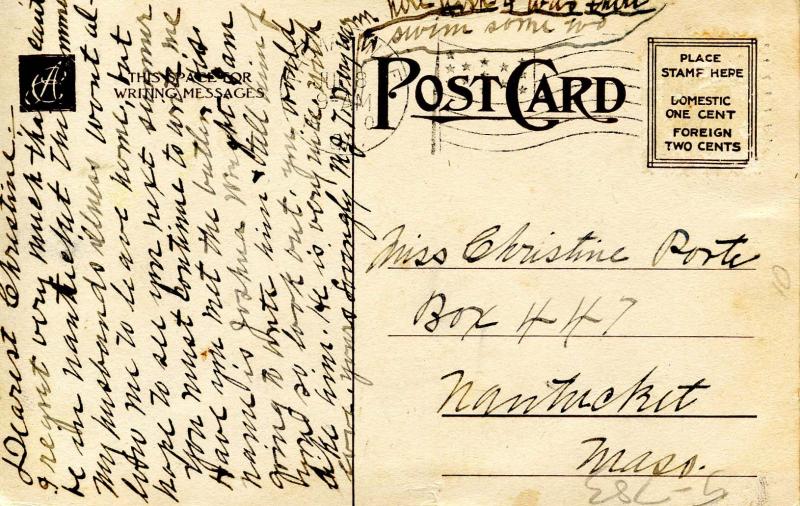 THIS SPACE FOR
WRITING MESSAGES
POST CARD
PLACE
STAMP HERE
DOMESTIC
ONE CENT
FOREIGN
TWO CENTS
Dearest Christine—
I regret very much this
be in Nantucket this
my husbands illness wont al-
low me to leave home, but
hope to see you next summer
You must continue to write me
Have you met the
name is Joshua Wright I am
going to write him & tell him
so look out, you would
like him. He is very
yours lovingly
here
swim some
Miss Christine Porte
Box 447
Nantucket
Mass.